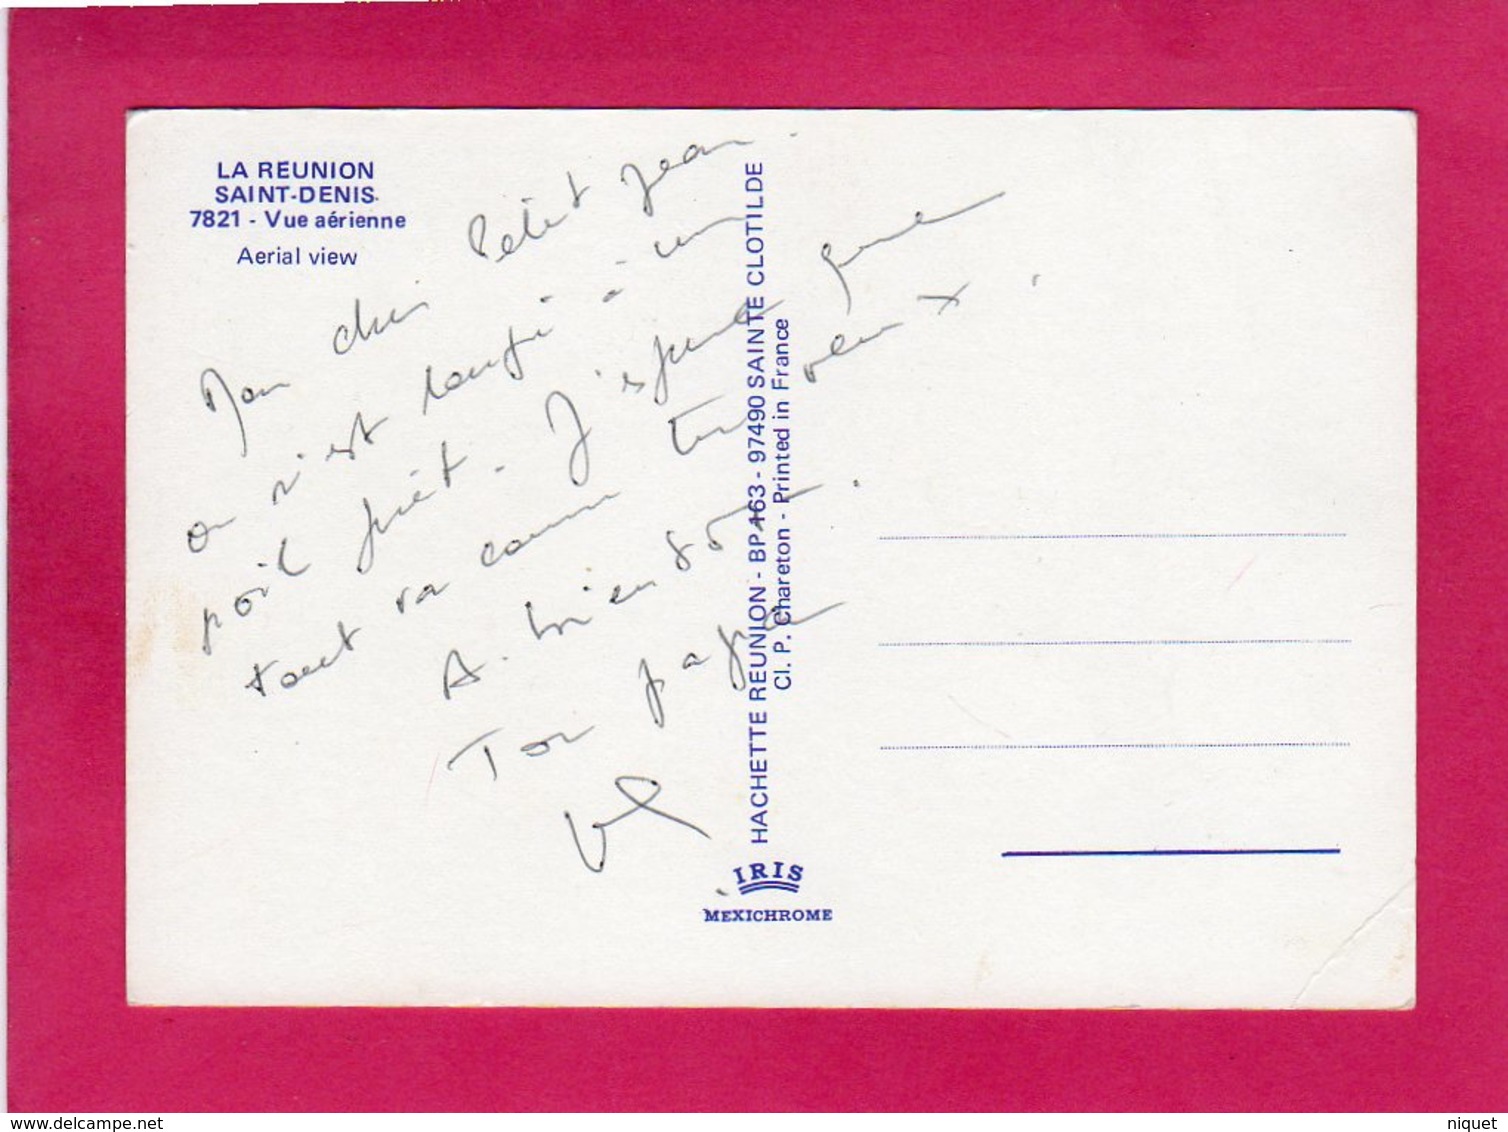 LA REUNION
SAINT-DENIS
7821 - Vue aérienne
Aerial view
Mon cher Petit Jean.
on s'est loupé à un
poil près. J'espère que
tout va comme tu veux.
A bientôt.
Ton papa
HACHETTE REUNION - BP 163 - 97490 SAINTE CLOTILDE
Cl. P. Chareton - Printed in France
IRIS
MEXICHROME
delcampe.net
niquet